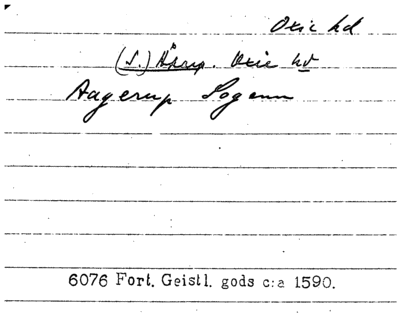 Oxie hd
(S.) Åkarp. Oxie hd
Aagerup Sogenn
6076 Fort. Geistl. gods c:a 1590.